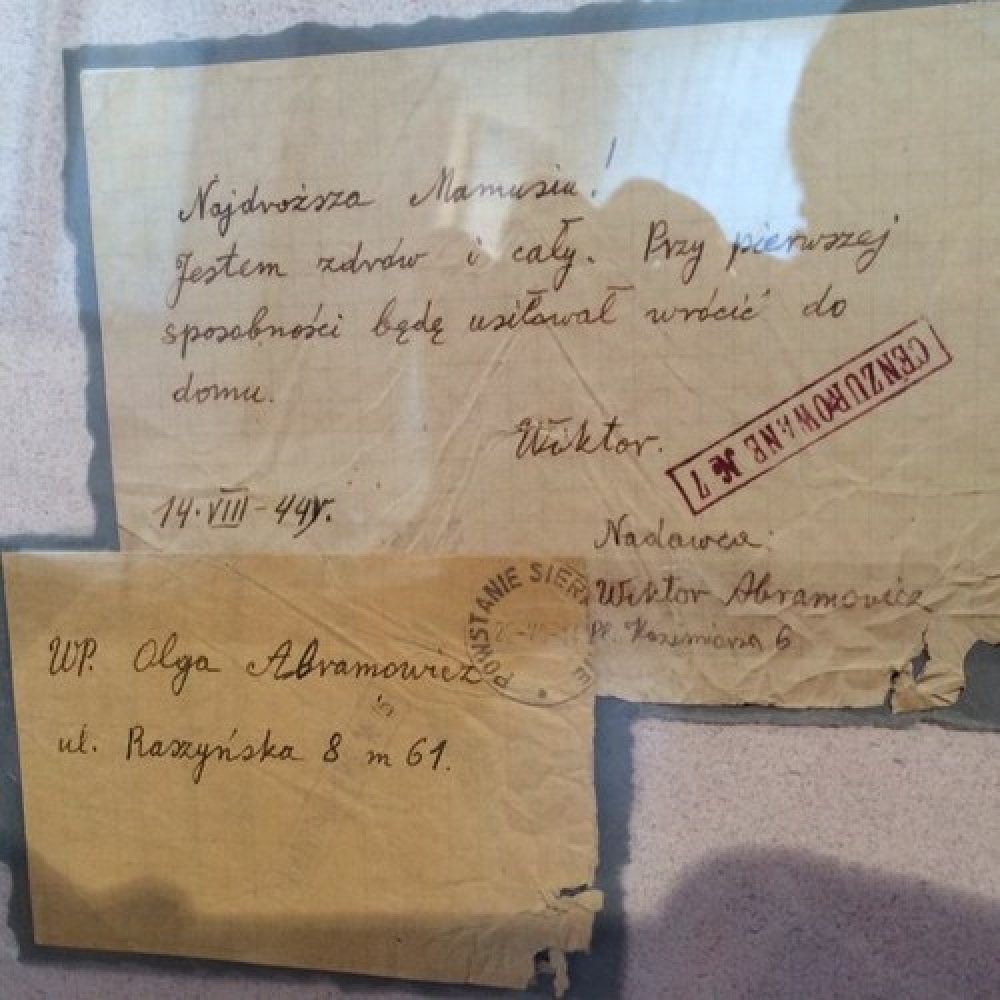 Najdroższa Mamusiu!
Jestem zdrów i cały. Przy pierwszej
sposobności będę usiłował wrócić do
domu.
Wiktor.
CENZUROWANE № 7
14.VIII-44r.
Nadawca:
Wiktor Abramowicz
Pl. Kazimierza 6
POWSTANIE SIERPNIOWE
WP. Olga Abramowicz
ul. Raszyńska 8 m 61.